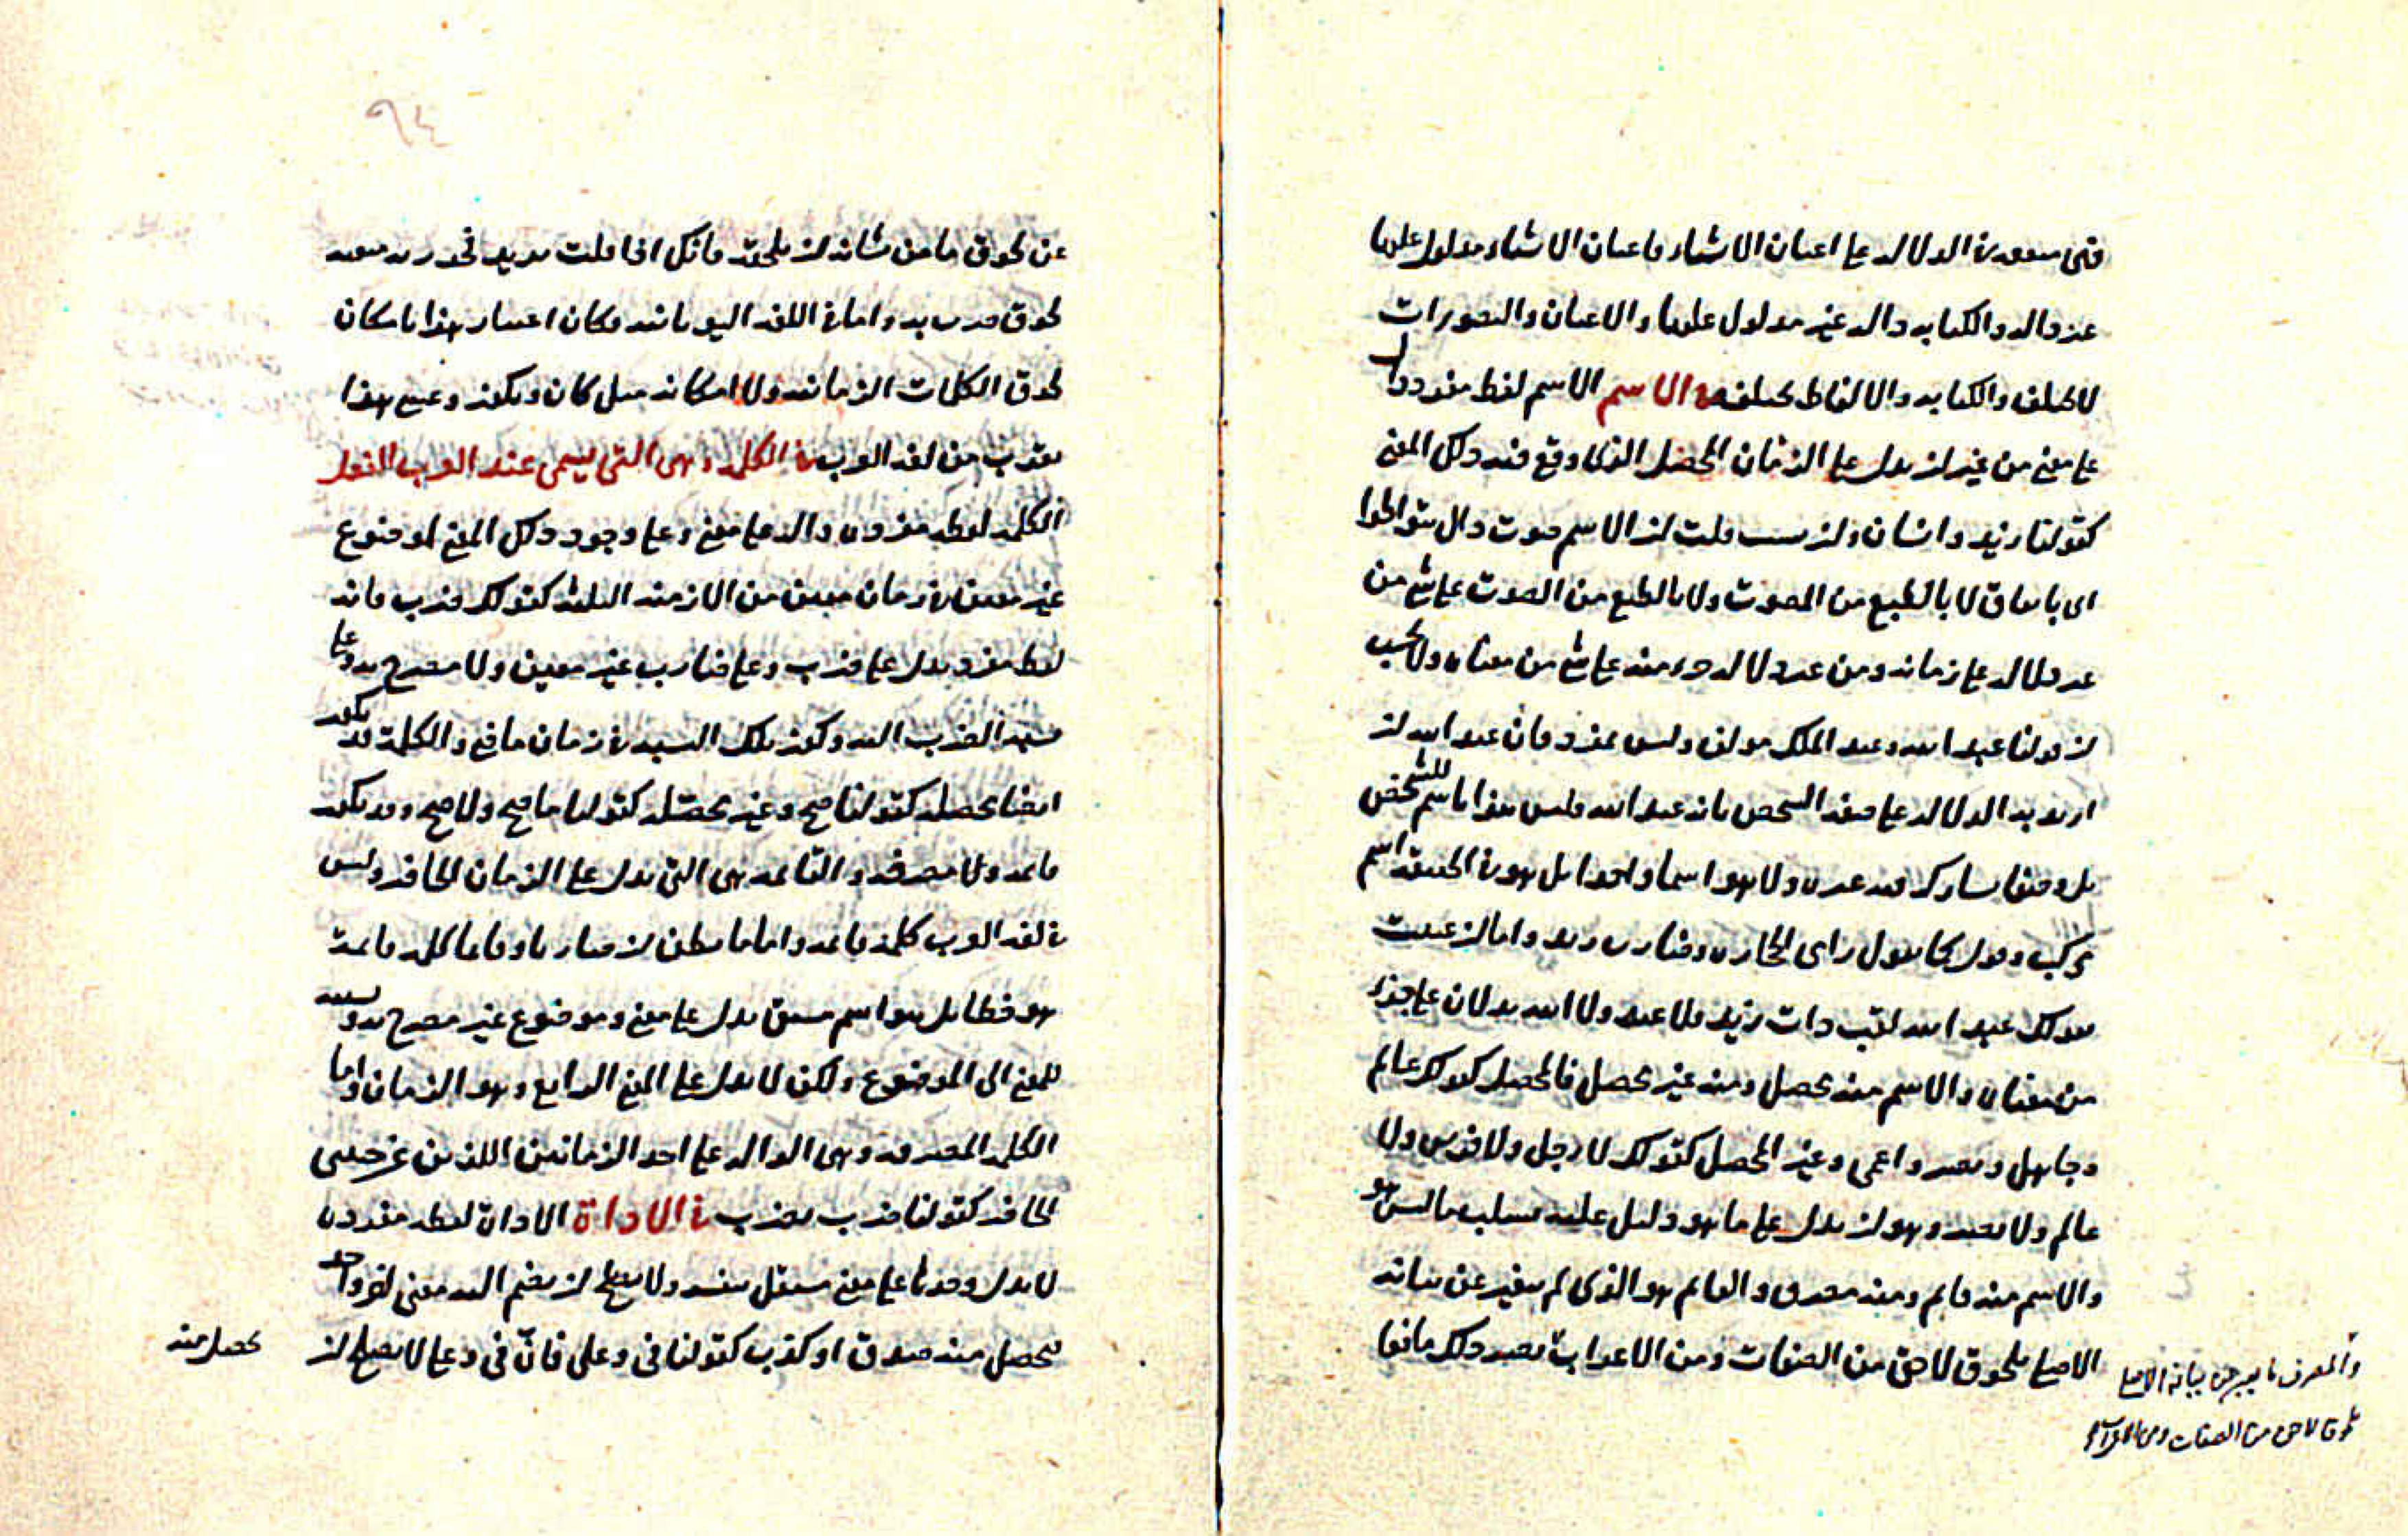 فهى معدودة الدلالة على اعيان الاشياء واعيان الاشياء مدلول عليها
غير دالة والكتابة دالة غير مدلول عليها والاعيان والتصورات
لا تختلف والكتابة والالفاظ تختلف فى الاسم الاسم لفظ مفرد دال
على معنى من غير ان يدل على الزمان المحصل الذى وقع فيه ذلك المعنى
كقولنا زيد وانسان وان شئت قلت ان الاسم صوت دال بتواطؤ
اى باتفاق لا بالطبع من المصوت ولا بالطبع من الصوت على شئ من
غير دلالة على زمانه ومن غير دلالة جزء منه على شئ من معناه ولا تحسب
ان قولنا عبد الله وعبد الملك مؤلف وليس بمفرد فان عبد الله ان
اريد به الدلالة على صفة الشخص بانه عبد الله فليس هذا باسم للشخص
بل وصفا يشاركه فيه غيره ولا هو اسما واحدا بل هو فى الحقيقة اسم
مركب وقول كما يقول رامى الحجارة وضارب زيد واما ان عنيت
بقولك عبد الله لقب ذات زيد فلا عبد ولا الله يدلان على جزء
من معناه والاسم منه محصل ومنه غير محصل فالمحصل كقولك عالم
وجاهل وبصير واعمى وغير المحصل كقولك لا رجل ولا فرس ولا
عالم ولا بصير وهو ان يدل على ما هو دليل عليه بسلب ما ليس هو
والاسم منه قائم ومنه مصرف والقائم هو الذى لم يتغير عن بنائه
الاصلى بلحوق لاحق من الصفات ومن الاعراب بعد ذلك مانعا
والمصرف ما يتغير عن بنائه الاصلى
بلحوق لاحق من الصفات ومن الاعراب
٩٤
عن لحوق ما من شانه ان يلحقه فانك اذا قلت بزيد تخور به منعه
لحوق ضرب به واما فى اللغة اليونانية فكان اعتبار هذا بامكان
لحوق الكلمات الزمانية ولا امكانه مثل كان ويكون وعسى هذا
يقرب من لغة العرب فى الكلمة وهى التى يسمى عند العرب الفعل
الكلمة لفظة مفردة دالة على معنى وعلى وجود ذلك المعنى لموضوع
غير معين فى زمان معين من الازمنة الثلثة كقولك ضرب فانه
لفظ مفرد يدل على ضرب وعلى ضارب غير معين ولا مصرح به وعلى
نسبة الضرب اليه وكون تلك النسبة فى زمان ماض والكلمة قد يكون
ايضا محصلة كقولنا صح وغير محصلة كقولنا ما صح ولا صح وقد يكون
قائمة ولا مصرفة والقائمة هى التى يدل على الزمان الحاضر وليس
فى لغة العرب كلمة قائمة واما ما يظن ان ضاربا وقائما كلمة قائمة
فهو خطا بل هو اسم مشتق يدل على معنى وموضوع غير مصرح به ونسبة
للمعنى الى الموضوع ولكن لا يدل على المعنى الرابع وهو الزمان واما
الكلمة المصرفة وهى الدالة على احد الزمانين اللذين عن جنبتى
الحاضر كقولنا ضرب يضرب فى الاداة الاداة لفظة مفردة
لا يدل وحدها على معنى مستقل بنفسه ولا يصلح ان يضم اليه معنى اخر واحد
فيحصل منه صدق او كذب كقولنا فى وعلى فان فى وعلى لا يصلح ان
يحصل منه